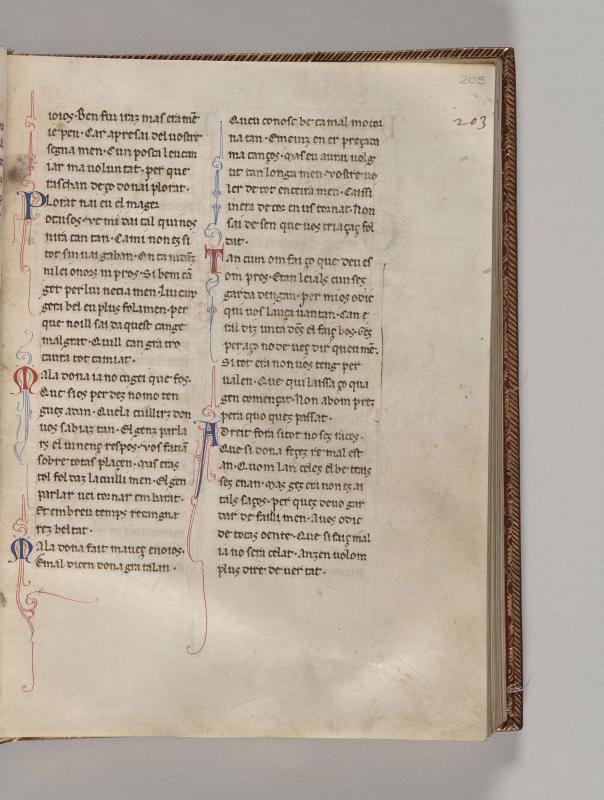 205
203
ioios. Ben fui iraz mas era mē
ie pen. Car apresai del uostre
segna men. Cun posca leu can
iar ma uoluntat. per que
taschan de ço don ai plorat.
Plorat nai eu el mager
nira can tan. Cami non es si
tot sin uai gaban.
nil ei onors ni pros. Si bem cā
get per lui necia men. Lui cug
gera bel eu plus fola men. per
que noill sai da quest cange
mal grat. Quill can gra tro
caura tot camiat.
Mala dona ia no cugei que fos.
Que fios per dez nomo ten
gues adan. Quela cuillirs don
uos sabiaz tan. El genz parla
rs el uinenç respos. uos faciā
sobre totas placen. Mas eras
tol foldaz la cuilli men. El gen
parlar uei tornar em barat.
Et em breu temps recangna
rez beltat.
Mala dona fait mauez enoios.
E mal dicen dona gra talan.
Queu conosc be camal mo
na tan. E meinz en er preçaca
ma canços. Mas eu aurai uolg
ut tan longa men. uostre uo
ler de tot enteira men. Caissi
mera de cor en us tornat. Non
sai de sen que uos tria çaç fol
dat.
Tan cum om fai ço que deu es
om pros. Etan leials cum ses
garda dengan. per mi os o dic
qui uos lauça uantan. Can e
ral diz unta dez el faiç bos. Ges
per aço no de ueç dir quen men.
Si tot era non uos teng per
ualen. Que qui laissa ço qua
gen començat. Non a bom prez
pera quo ques passat.
Adreit fora si tot no ses raços.
Que si dona feçes re mal est
an. Quom lan celes el be trais
ses enan. Mas ges era non es ai
tals saços. per ques deuo gar
dar de failli men. A uos o dic
de totas ou ente. Que si faiç mal
ia no sera celat. Anz en uolom
plus dire de uer tat.